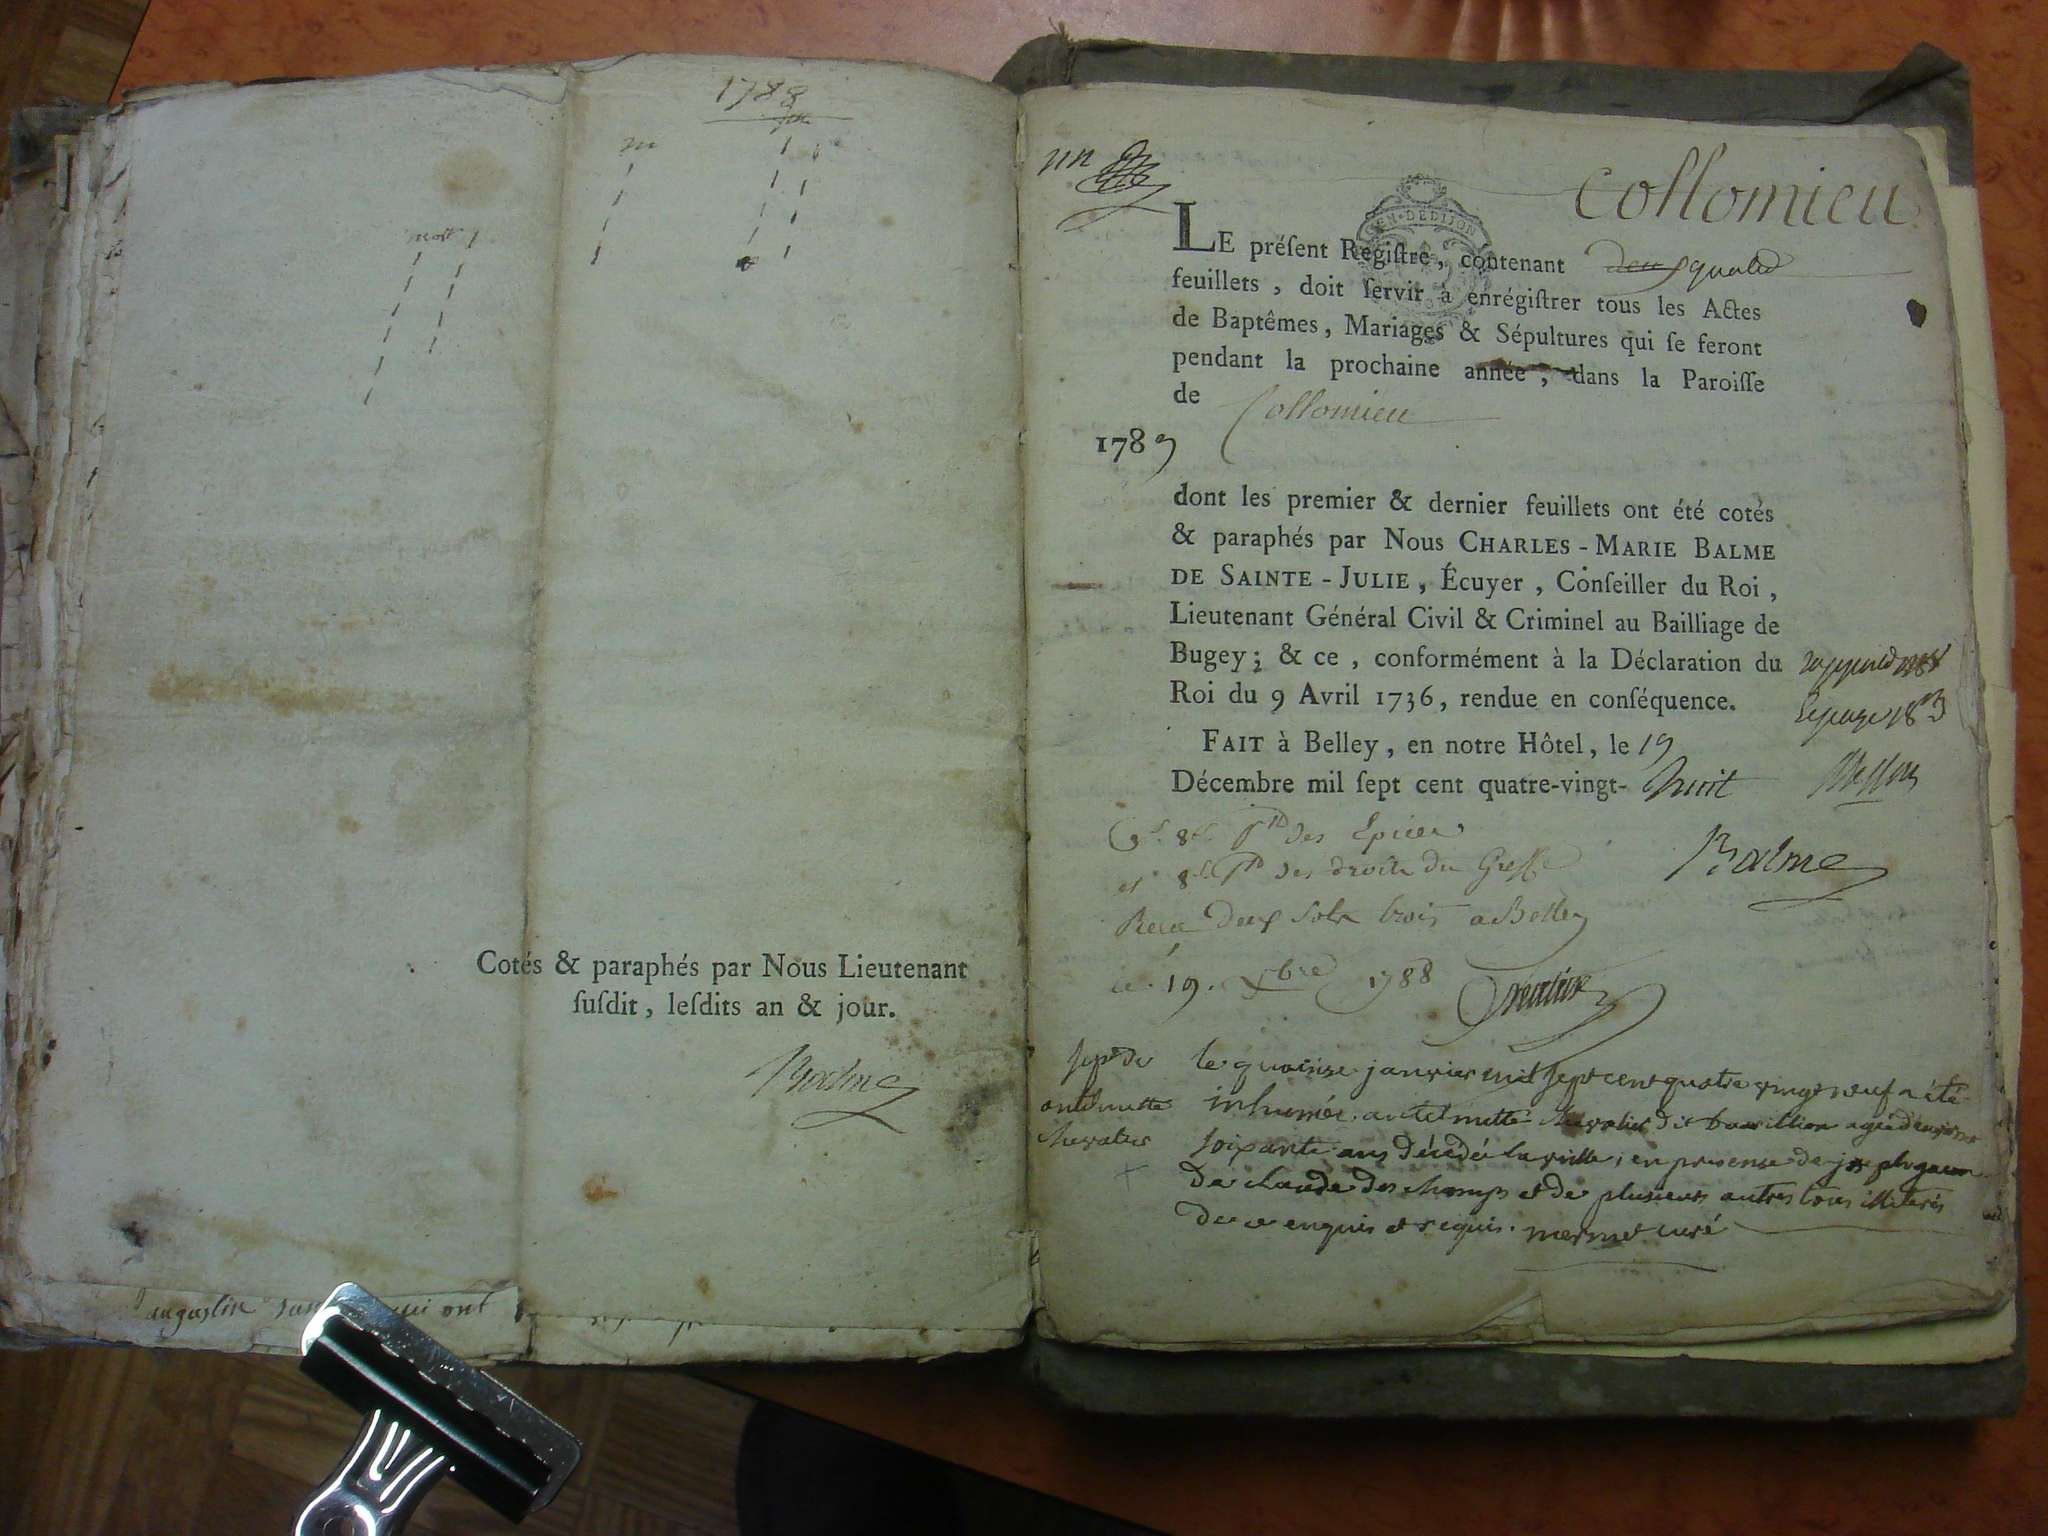 1788
m
mort
Cotés & paraphés par Nous Lieutenant
ſuſdit, leſdits an & jour.
Balme
augustin
qui ont
un
Collomieu
GEN·DEDIJON
LE préſent Regiſtre, contenant deux quatre
feuillets, doit ſervir à enrégiſtrer tous les Actes
de Baptêmes, Mariages & Sépultures qui ſe feront
pendant la prochaine année, dans la Paroiſſe
de Collomieu
1789
dont les premier & dernier feuillets ont été cotés
& paraphés par Nous CHARLES-MARIE BALME
DE SAINTE-JULIE, Écuyer, Conſeiller du Roi,
Lieutenant Général Civil & Criminel au Bailliage de
Bugey; & ce, conformément à la Déclaration du
Roi du 9 Avril 1736, rendue en conſéquence.
FAIT à Belley, en notre Hôtel, le 19
Décembre mil ſept cent quatre-vingt-huit
Balme
des Epices
et des droits du Greffe
Receu Deux sols trois a Belley
ce 19. Xbre 1788
sep de
antelmette
chevalier
le quainze janvier mil sept cent quatre vingt neuf a été
inhumée antelmette chevalier dit agée d'environ
soixante ans décédée la veille, en presence de joseph
de claude des champs et de plusieurs autres tous illiterés
de ce enquis et requis. mermet curé